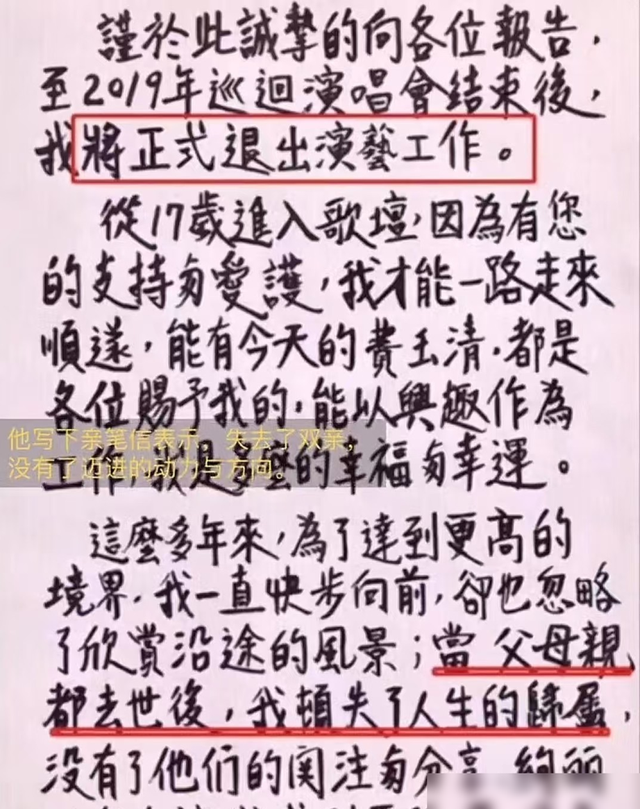 謹於此誠摯的向各位報告，
至2019年巡迴演唱會結束後，
我將正式退出演藝工作。
從17歲進入歌壇，因為有您
的支持與愛護，我才能一路走來
順遂，能有今天的費玉清，都是
各位賜予我的，能以興趣作為
工作，我是多麼的幸福與幸運。
他写下亲笔信表示，失去了双亲，
没有了迈进的动力与方向。
這麼多年來，為了達到更高的
境界，我一直快步向前，卻也忽略
了欣賞沿途的風景；當父母親
都去世後，我頓失了人生的歸屬，
沒有了他們的關注與分享，絢麗